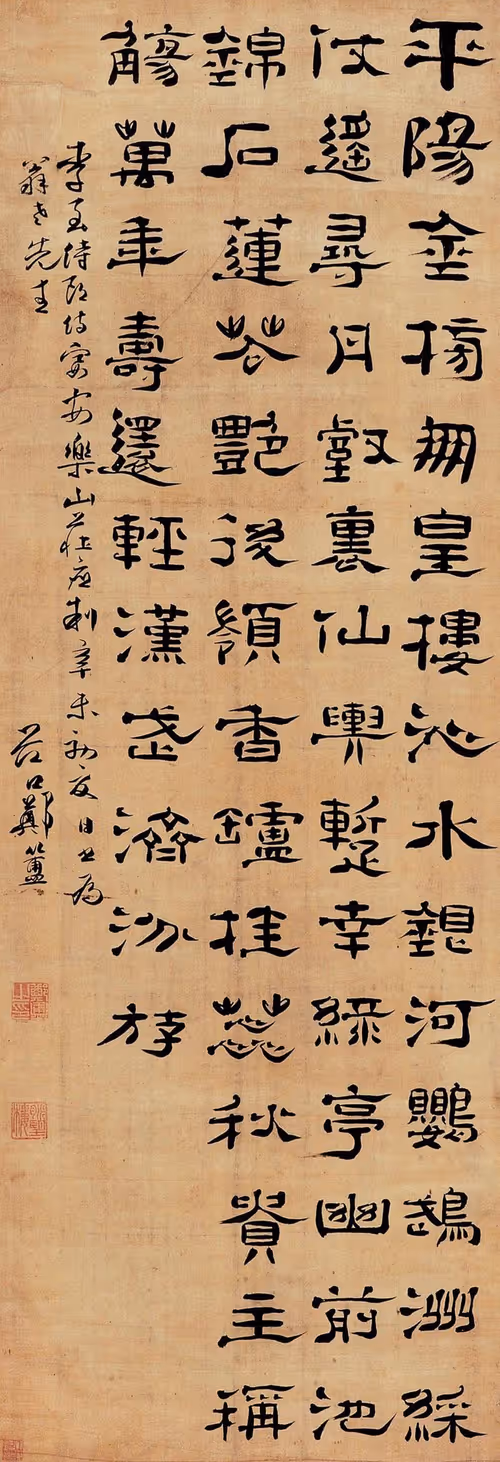 平陽金榜鳳皇樓沁水銀河鸚鵡洲綵
仗遥尋丹壑裏仙輿蹔幸綠亭幽前池
錦石蓮花艷後領香鑪桂蕊秋貴主稱
觴萬年壽還輕漢武濟汾斿
李適侍郎侍宴安樂山莊應制辛未初夏日書為
翁老先生
谷口鄭簠